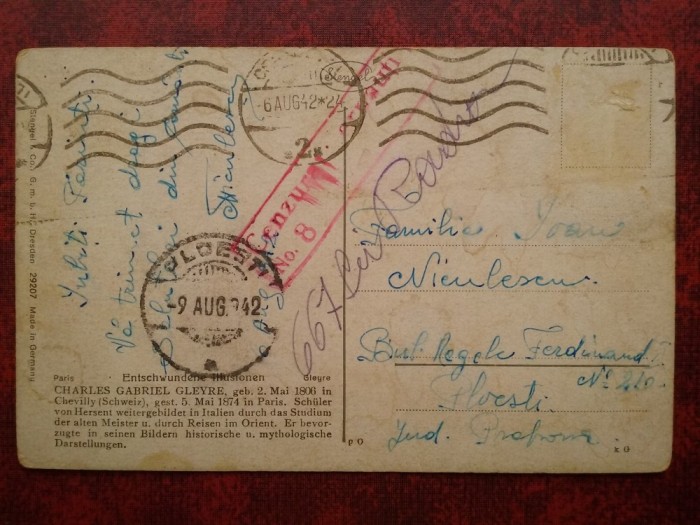 Stengel & Co., G. m. b. H., Dresden 29207 Made in Germany
Iubiți Părinți
Vă trimet dragi
din
Niculescu
6 AUG 42
2
Stengel
Cenzurat
No. 8
PLOESTI
-9 AUG. 942
667
Familia Ioan
Niculescu
Bul. Regele Ferdinand
No 220
Ploesti
Jud. Prahova
Paris Entschwundene Illusionen Gleyre
CHARLES GABRIEL GLEYRE, geb. 2. Mai 1806 in
Chevilly (Schweiz), gest. 5. Mai 1874 in Paris. Schüler
von Hersent weitergebildet in Italien durch das Studium
der alten Meister u. durch Reisen im Orient. Er bevor-
zugte in seinen Bildern historische u. mythologische
Darstellungen.
p O
k G